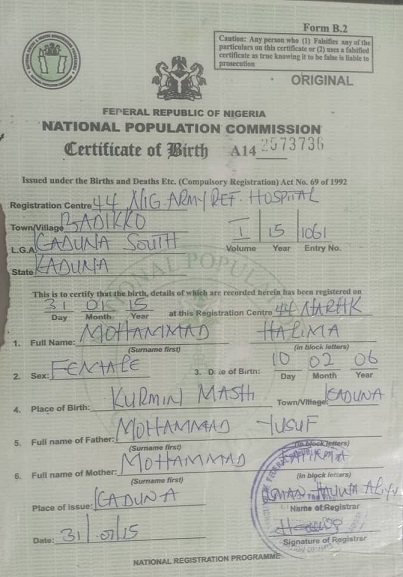 Form B.2
Caution: Any person who (1) Falsifies any of the
particulars on this certificate or (2) uses a falsified
certificate as true knowing it to be false is liable to
prosecution
ORIGINAL
FEDERAL REPUBLIC OF NIGERIA
NATIONAL POPULATION COMMISSION
Certificate of Birth A14 2573736
Issued under the Births and Deaths Etc. (Compulsory Registration) Act No. 69 of 1992
Registration Centre 44 NIG ARMY REF. HOSPITAL
Town/Village BADIKKO
L.G.A KADUNA SOUTH 1 15 1061
Volume Year Entry No.
State KADUNA
This is to certify that the birth, details of which are recorded herein has been registered on
31 01 15 at this Registration Centre 44 NARHK
Day Month Year
1. Full Name: MOHAMMAD HALIMA
(Surname first) (in block letters)
2. Sex: FEMALE 3. Date of Birth: 10 02 06
Day Month Year
4. Place of Birth: KURMIN MASHI Town/Village: KADUNA
5. Full name of Father: MOHAMMAD YUSUF
(Surname first) (in block letters)
6. Full name of Mother: MOHAMMAD
(Surname first) (in block letters)
Place of issue: KADUNA
Name of Registrar
Date: 31 15
Signature of Registrar
NATIONAL REGISTRATION PROGRAMME